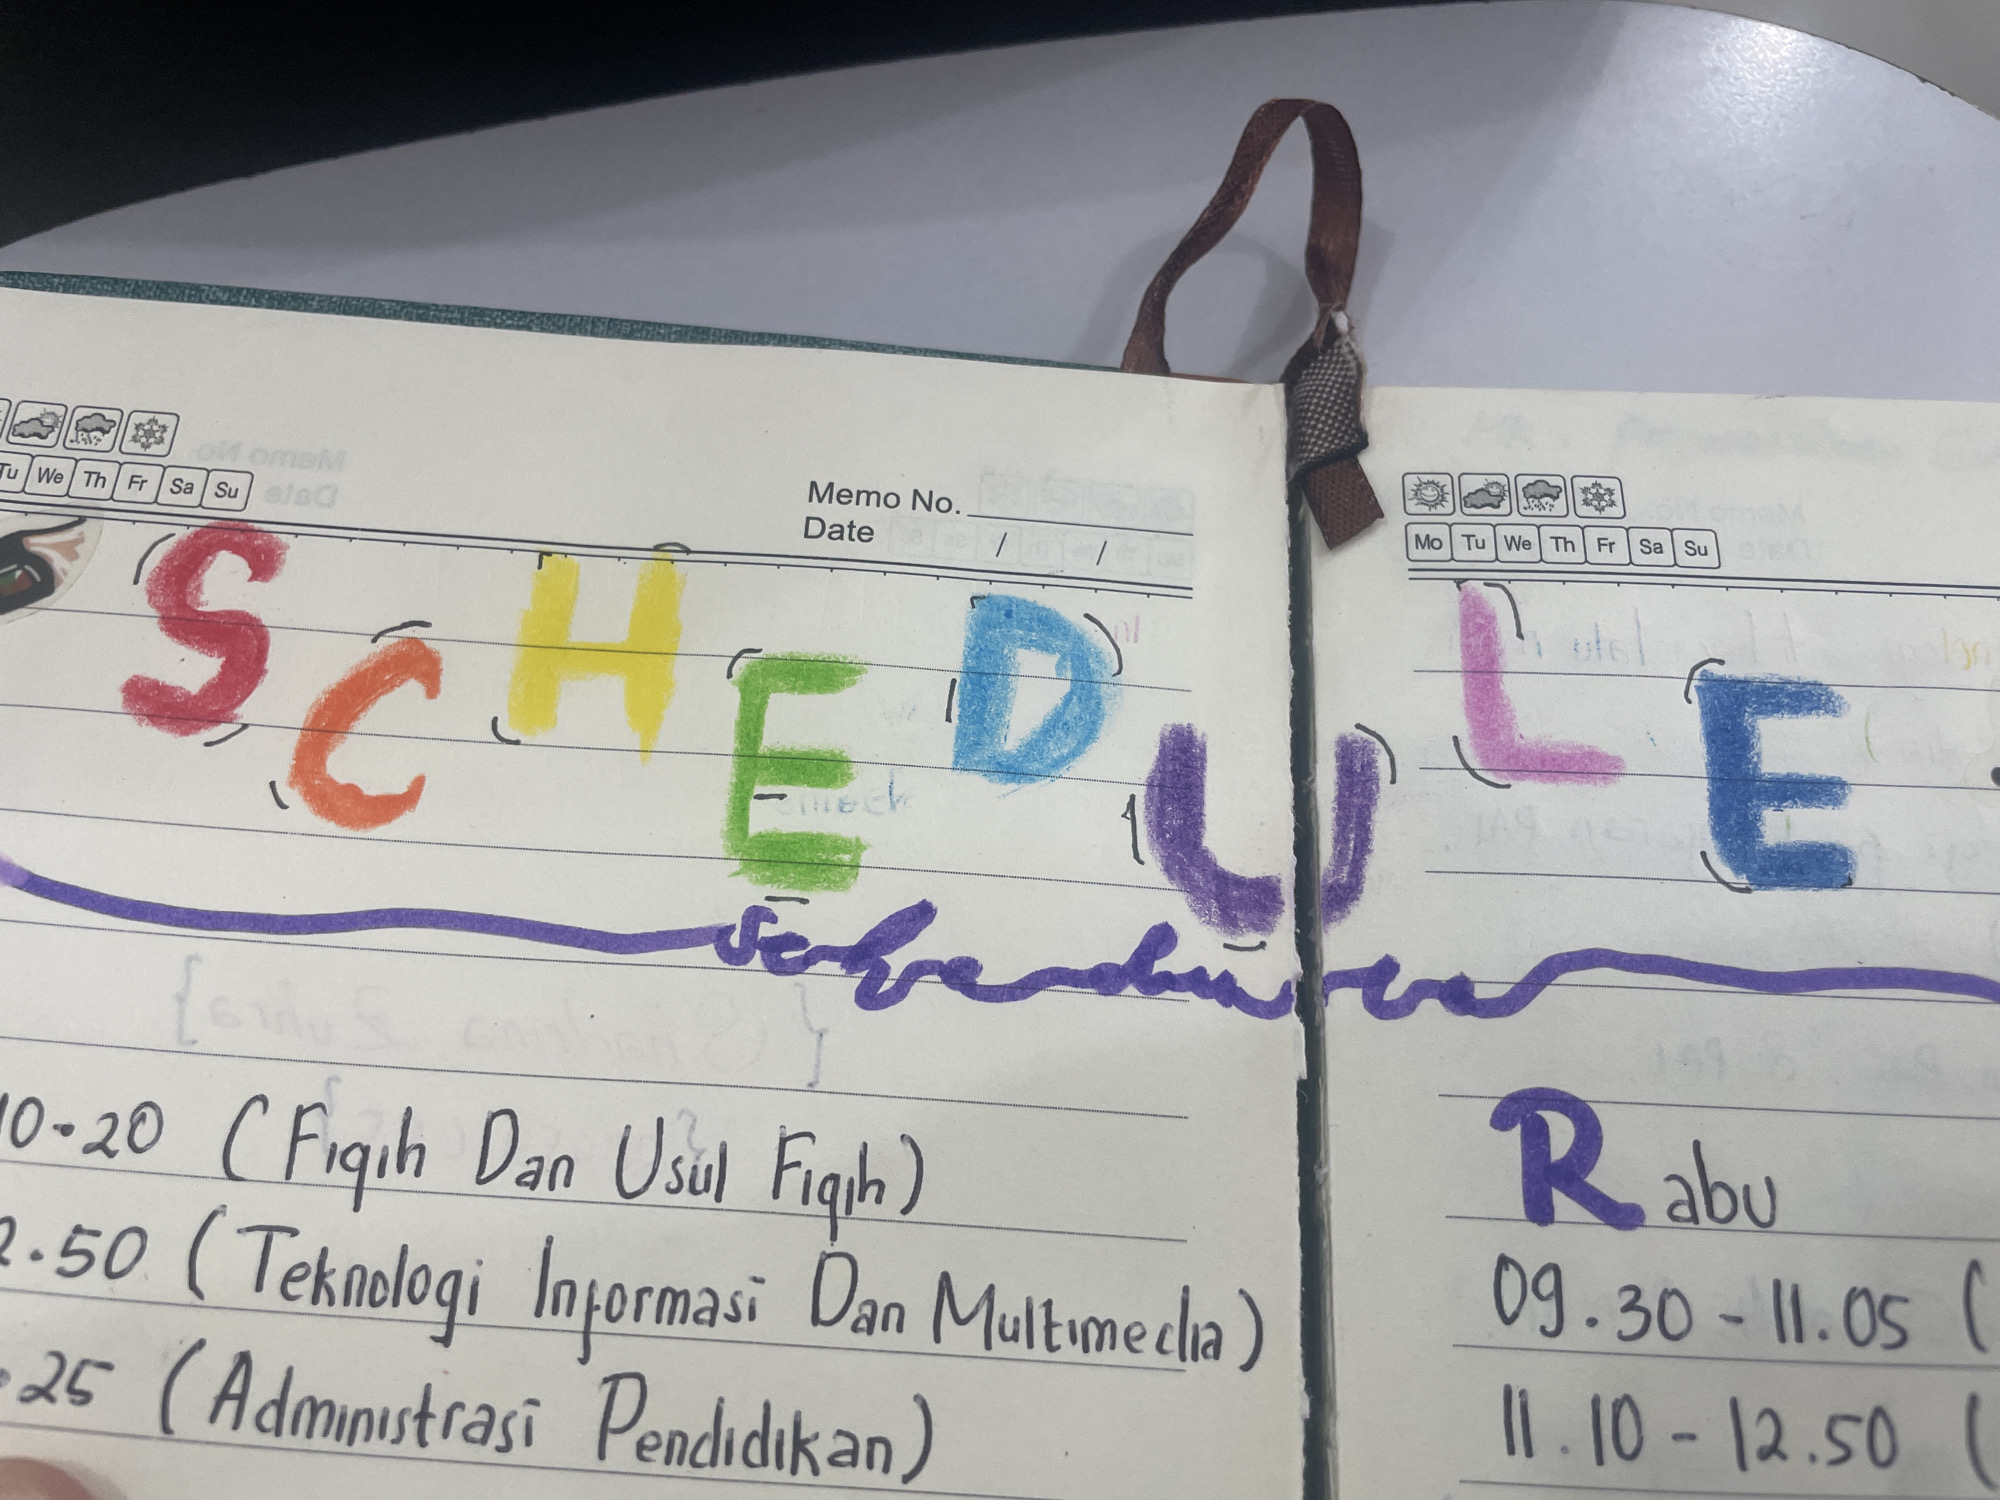 Tu We Th Fr Sa Su
Memo No.
Date / /
Mo Tu We Th Fr Sa Su
SCHEDULE
10.20 (Fiqih Dan Usul Fiqih)
2.50 (Teknologi Informasi Dan Multimedia)
.25 (Administrasi Pendidikan)
Rabu
09.30 - 11.05 (
11.10 - 12.50 (